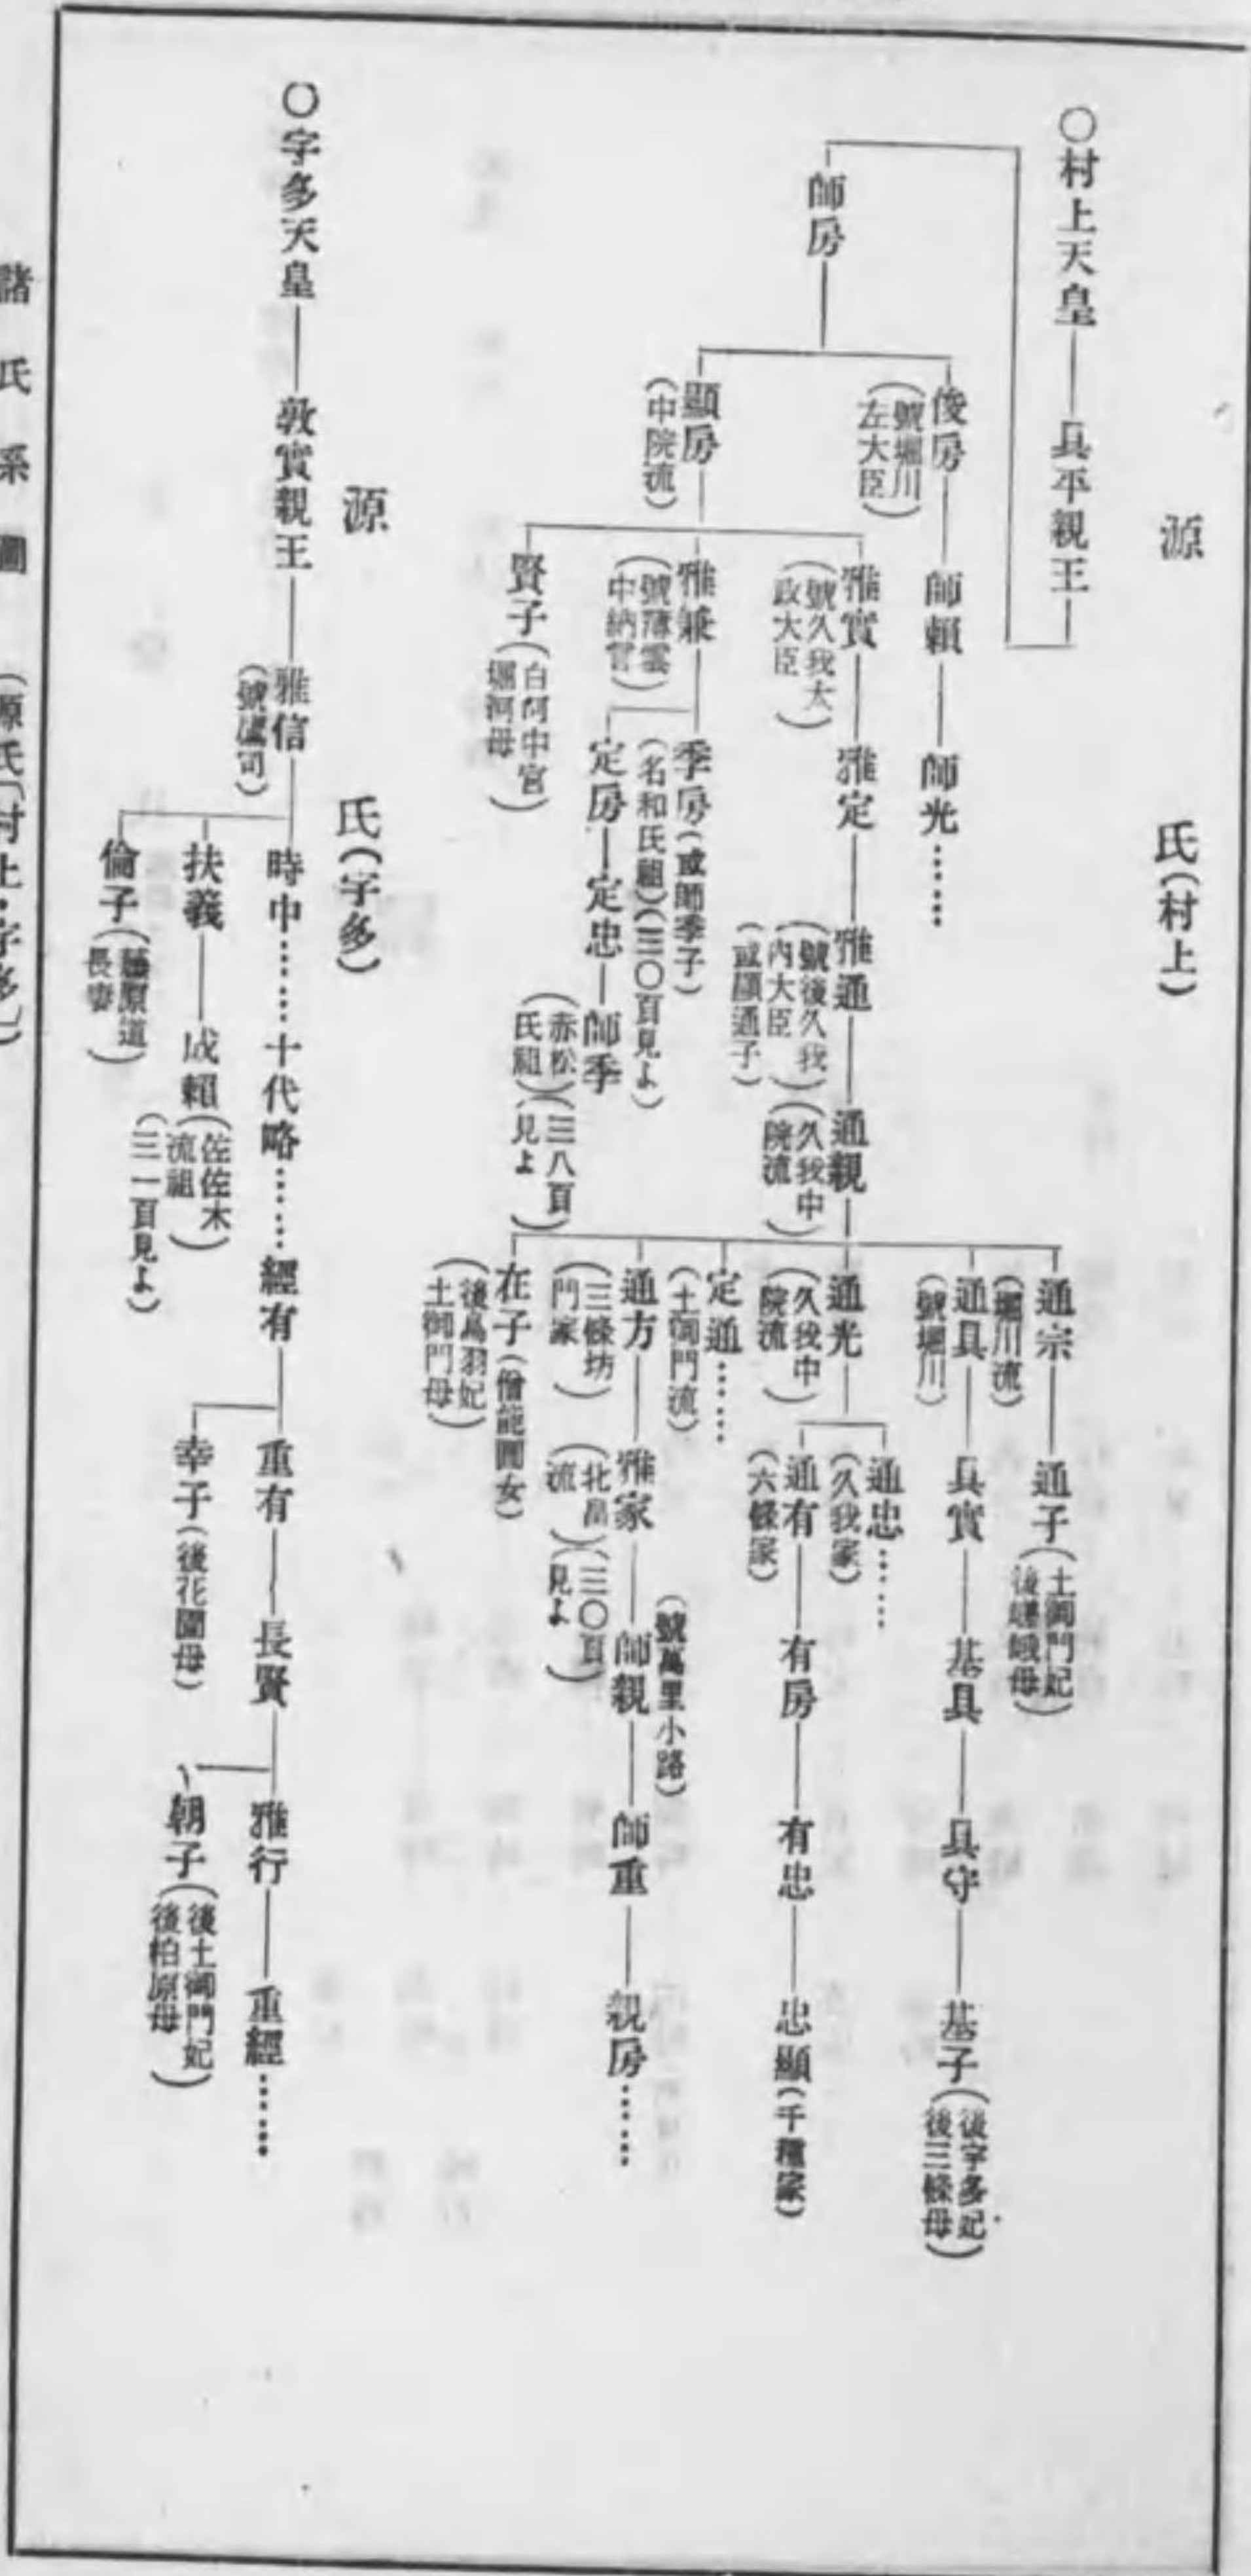 源氏(村上)
〇村上天皇―具平親王
師房
俊房
(號堀川
左大臣)
師賴―師光……
顯房
(中院流)
雅實
(號久我太
政大臣)
雅定―雅通
(號後久我
內大臣)
(或顯通子)
通親
(久我中
院流)
雅兼
(號薄雲
中納言)
季房(或師季子)
(名和氏祖)(三〇頁見よ)
定房―定忠―師季
(赤松
氏祖)
(三八頁
見よ)
賢子(白河中宮
堀河母)
通宗
(堀川流)
通子(土御門妃
後嵯峨母)
通具
(號堀川)
具實―基具―具守―基子(後宇多妃
後二條母)
通光
(久我中
院流)
通忠……
(久我家)
通有
(六條家)
有房―有忠―忠顯(千種家)
定通……
(土御門流)
通方
(三條坊
門家)
雅家
(北畠
流)
(三〇頁
見よ)
師親
(號萬里小路)
師重―親房……
在子(僧能圓女)
(後鳥羽妃
土御門母)
源氏(宇多)
〇宇多天皇―敦實親王―雅信
(號鷹司)
時中……十代略……經有―重有―長賢―雅行―重經……
扶義―成賴(佐佐木
流祖)
(三一頁見よ)
倫子(藤原道
長妻)
幸子(後花園母)
朝子(後土御門妃
後柏原母)
諸氏系圖 (源氏(村上・宇多))